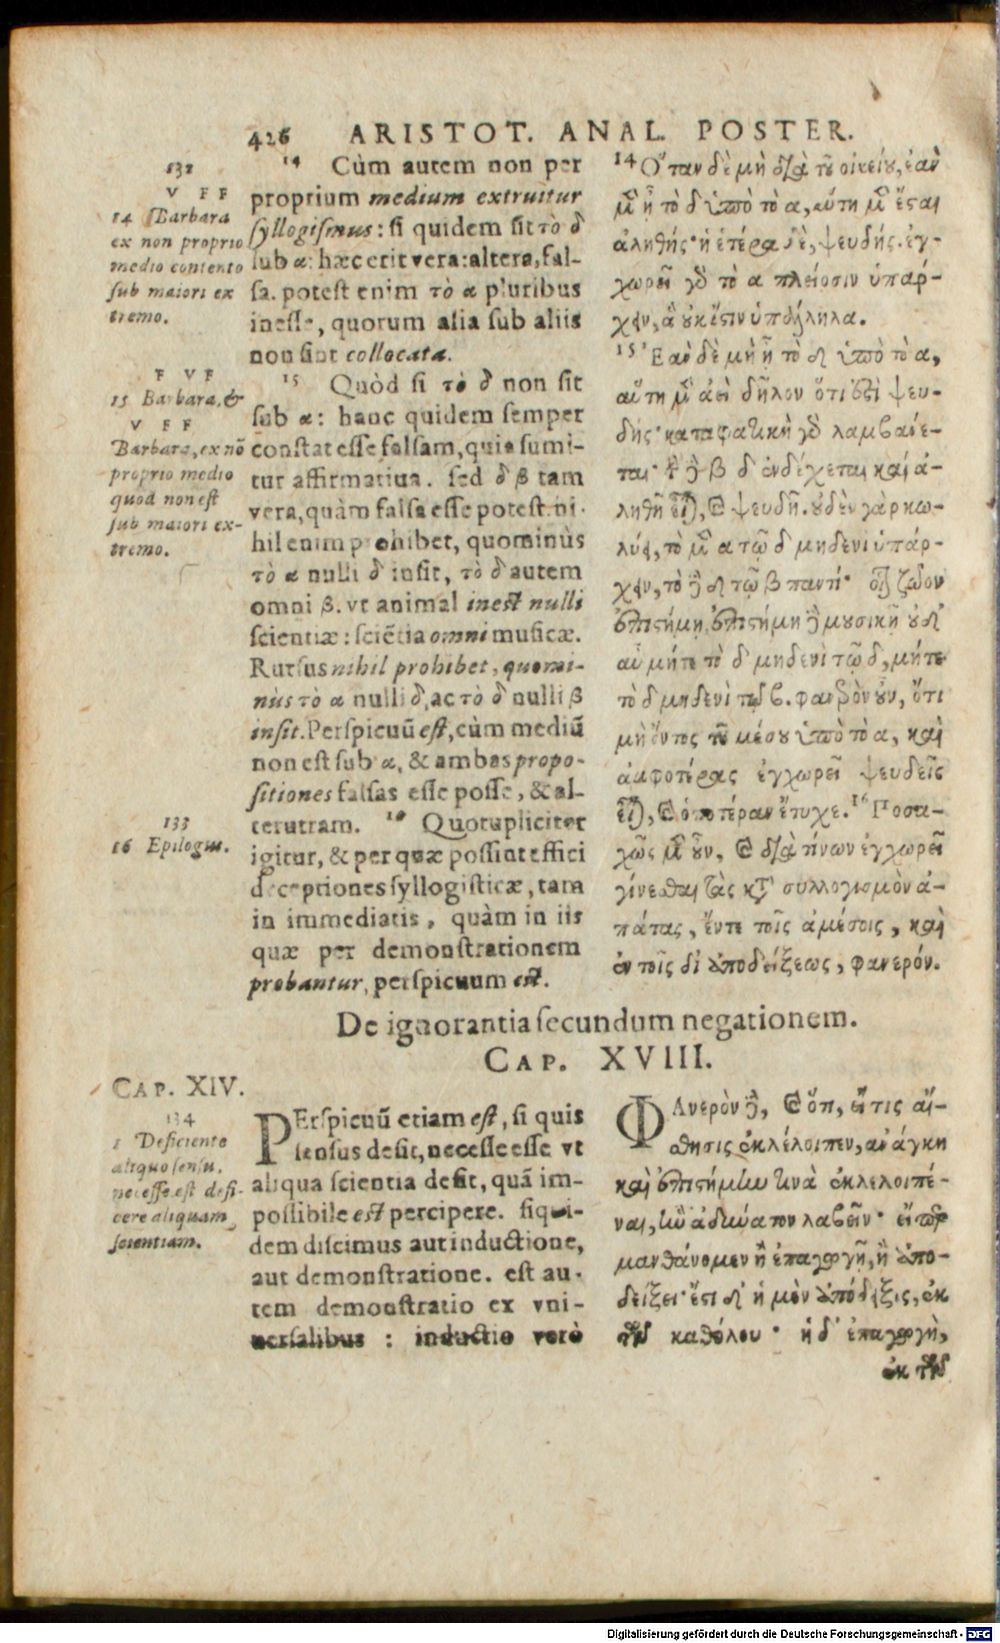 426 ARISTOT. ANAL. POSTER.
132
V F F
14 Barbara
ex non proprio
medio contento
sub maiori ex
tremo.
F V F
15 Barbara, &
V F F
Barbara, ex nõ
proprio medio
quod non est
sub maiori ex-
tremo.
133
16 Epilogus.
14 Cùm autem non per
proprium medium extruitur
syllogismus: si quidem sit τὸ δ
sub α: hæc erit vera: altera, fal-
sa. potest enim τὸ α pluribus
inesse, quorum alia sub aliis
non sint collocata.
15 Quòd si τὸ δ non sit
sub α: hanc quidem semper
constat esse falsam, quia sumi-
tur affirmatiua. sed δ β tam
vera, quàm falsa esse potest. ni-
hil enim prohibet, quominùs
τὸ α nulli δ insit, τὸ δ autem
omni β. vt animal inest nulli
scientiæ: sciẽtia omni musicæ.
Rursus nihil prohibet, quomi-
nùs τὸ α nulli δ, ac τὸ δ nulli β
insit. Perspicuũ est, cùm mediũ
non est sub α, & ambas propo-
sitiones falsas esse posse, & al-
terutram. 16 Quotupliciter
igitur, & per quæ possint effici
deceptiones syllogisticæ, tam
in immediatis, quàm in iis
quæ per demonstrationem
probantur, perspicuum est.
14 Ὅταν δὲ μὴ διὰ τοῦ οἰκείου, ἐὰν
μὲν ᾖ τὸ δ ὑπὸ τὸ α, αὕτη μὲν ἔσται
ἀληθής· ἡ ἑτέρα δὲ, ψευδής. ἐγ-
χωρεῖ γὰρ τὸ α πλείοσιν ὑπάρ-
χειν, ἃ οὐκ ἔστιν ὑπάλληλα.
15 Ἐὰν δὲ μὴ ᾖ τὸ δ ὑπὸ τὸ α,
αὕτη μὲν ἀεὶ δῆλον ὅτι ἔσται ψευ-
δής· καταφατικὴ γὰρ λαμβάνε-
ται· τὴν δὲ β δ ἐνδέχεται καὶ ἀ-
ληθῆ εἶναι, καὶ ψευδῆ. οὐδὲν γὰρ κω-
λύει, τὸ μὲν α τῷ δ μηδενὶ ὑπάρ-
χειν, τὸ δὲ δ τῷ β παντί· οἷον ζῷον
ἐπιστήμῃ, ἐπιστήμη δὲ μουσικῇ οὐδ'
αὖ μήτε τὸ δ μηδενὶ τῷ δ, μήτε
τὸ δ μηδενὶ τῷ β. φανερὸν οὖν, ὅτι
μὴ ὄντος τοῦ μέσου ὑπὸ τὸ α, καὶ
ἀμφοτέρας ἐγχωρεῖ ψευδεῖς
εἶναι, καὶ ὁποτέραν ἔτυχε. 16 Ποσα-
χῶς μὲν οὖν, καὶ διὰ τίνων ἐγχωρεῖ
γίνεσθαι τὰς κατὰ συλλογισμὸν ἀ-
πάτας, ἔν τε τοῖς ἀμέσοις, καὶ
ἐν τοῖς δι' ἀποδείξεως, φανερόν.
De ignorantia secundum negationem.
CAP. XVIII.
CAP. XIV.
134
1 Deficiente
aliquo sensu,
necesse est defi-
cere aliquam
scientiam.
PErspicuũ etiam est, si quis
sensus desit, necesse esse vt
aliqua scientia desit, quã im-
possibile est percipere. siqui-
dem discimus aut inductione,
aut demonstratione. est au-
tem demonstratio ex vni-
uersalibus : inductio verò
ΦΑνερὸν δὲ, καὶ ὅτι, εἴ τις αἴ-
σθησις ἐκλέλοιπεν, ἀνάγκη
καὶ ἐπιστήμην τινὰ ἐκλελοιπέ-
ναι, ἣν ἀδύνατον λαβεῖν· εἴπερ
μανθάνομεν ἢ ἐπαγωγῇ, ἢ ἀπο-
δείξει· ἔστι δ' ἡ μὲν ἀπόδειξις, ἐκ
τῶν καθόλου· ἡ δ' ἐπαγωγὴ,
ἐκ τῶν
Digitalisierung gefördert durch die Deutsche Forschungsgemeinschaft - DFG